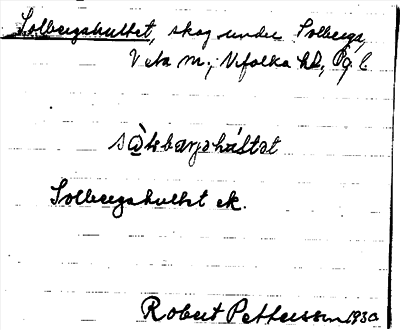 Solbergahultet, skog under Solberga,
Veta sn; Vifolka hd, Ög. l.
Solbergahultet ek.
Robert Pettersson 1930